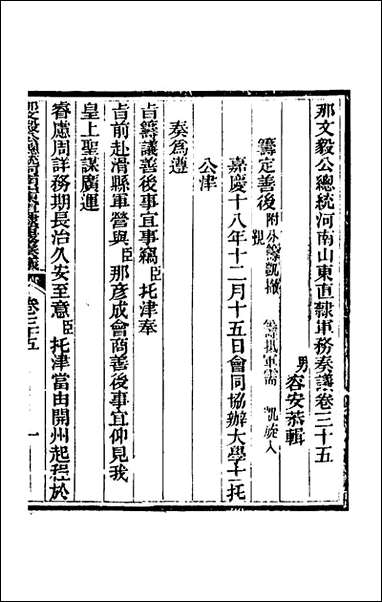 那文毅公總統河南山東直隸軍務奏議卷三十五
男容安恭輯
籌定善後 附分籌凱撤 籌撥軍需 凱旋入覲
嘉慶十八年十二月十五日會同協辦大學士托
公津
奏為遵
旨籌議善後事宜事竊臣托津奉
旨前赴滑縣軍營與臣那彥成會商善後事宜仰見我
皇上聖謀廣運
睿慮周詳務期長治久安至意臣托津當由開州起程於
卷三十五 一